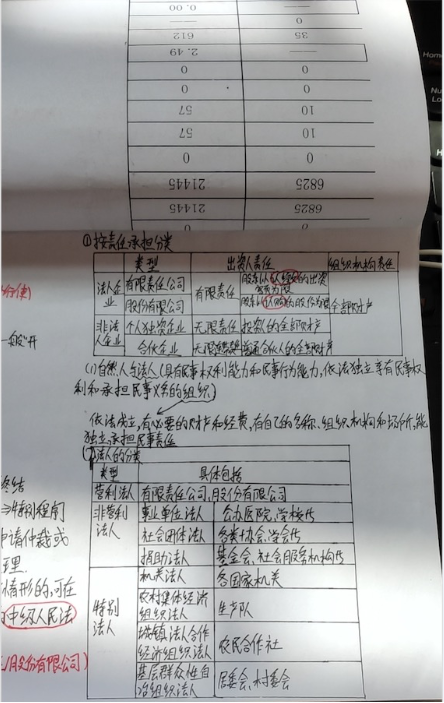 0.00
—
612
35
2.49
—
0
0
0
0
57
10
57
10
0
0
21445
6825
21445
6825
0
①按责任承担分类
类型 出资人责任 组织机构责任
法人企业 有限责任公司 有限责任 股东以认缴的出资额为限 全部财产
股份有限公司 股东以认购的股份为限
非法人企业 个人独资企业 无限责任 投资人的全部财产
合伙企业 无限 普通合伙人的全部财产
(1)自然人与法人(具有民事权利能力和民事行为能力,依法独立享有民事权
利和承担民事义务的组织)
依法成立,有必要的财产和经费,有自己的名称、组织机构和场所,能
独立承担民事责任
法人的分类
类型 具体包括
营利法人 有限责任公司,股份有限公司
非营利法人 事业单位法人 公办医院,学校
社会团体法人 各类协会,学会
捐助法人 基金会,社会服务机构
特别法人 机关法人 各国家机关
农村集体经济组织法人 生产队
城镇 法合作经济组织法人 农民合作社
基层群众性自治组织法人 居委会,村委会
终结
特别程序
申请仲裁或
情形的,可在
中级人民法
股份有限公司)